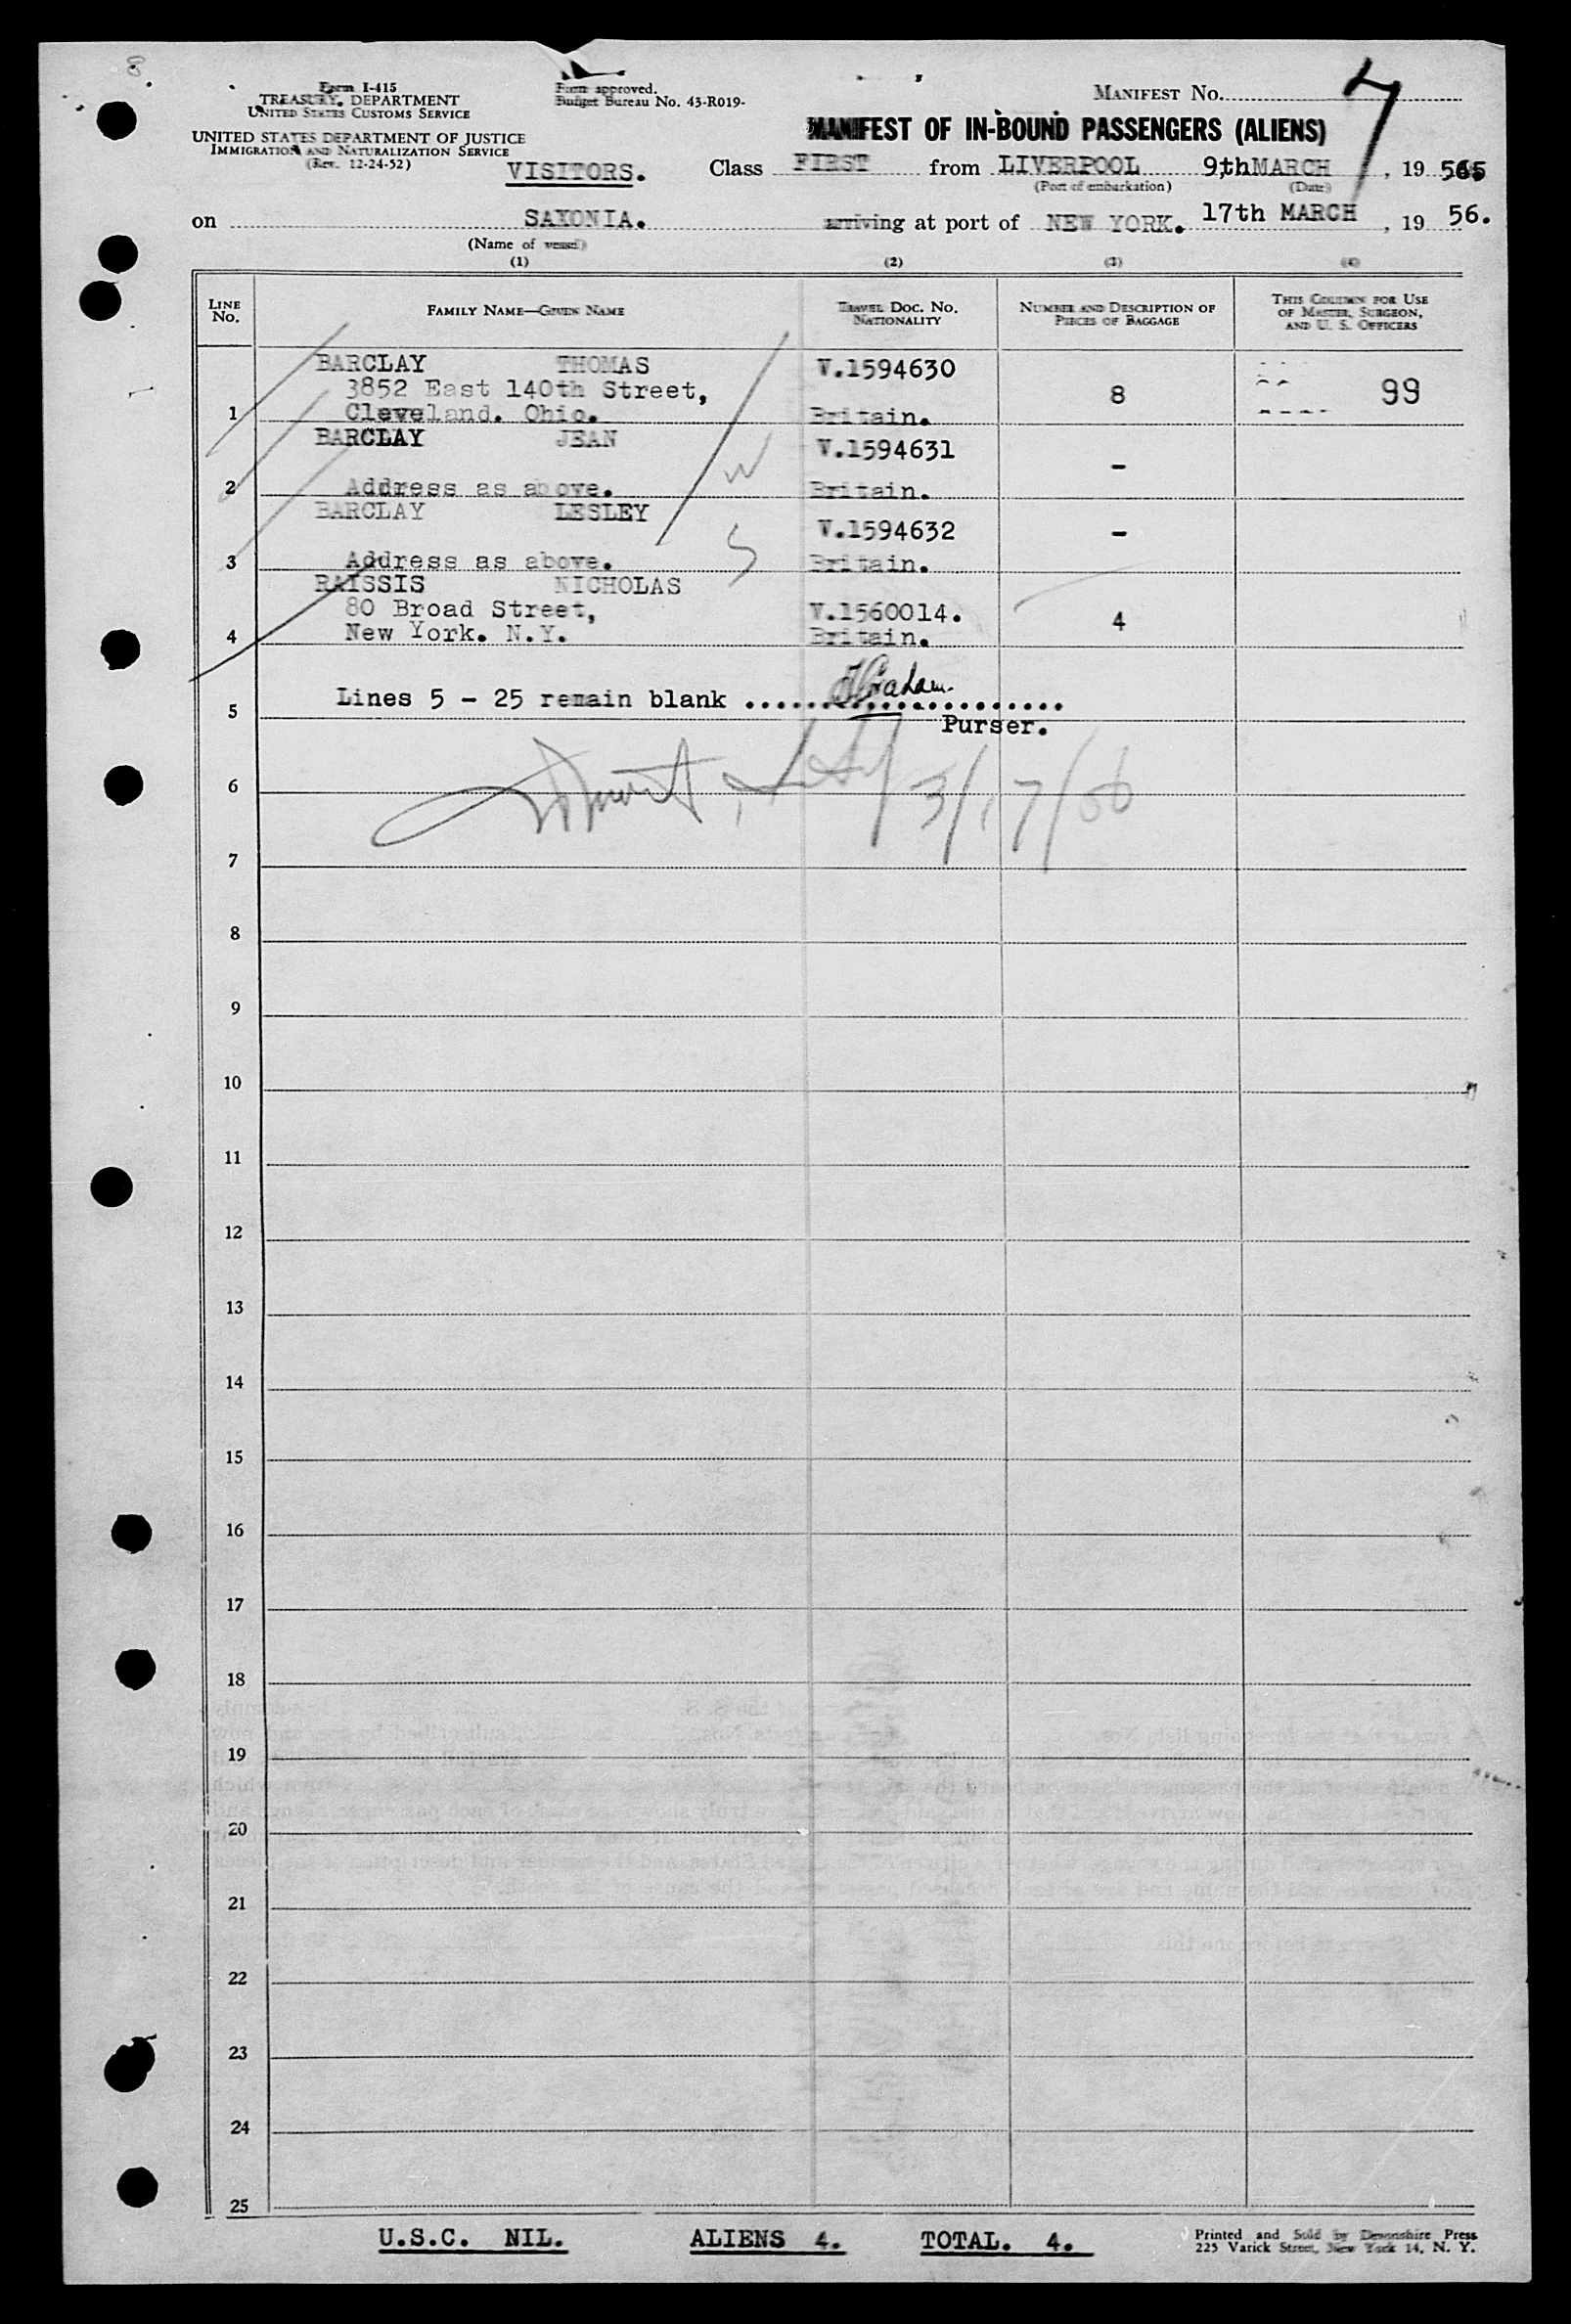 8
Form I-415
TREASURY DEPARTMENT
UNITED STATES CUSTOMS SERVICE
UNITED STATES DEPARTMENT OF JUSTICE
IMMIGRATION AND NATURALIZATION SERVICE
(Rev. 12-24-52)
Form approved.
Budget Bureau No. 43-R019-
MANIFEST NO. 7
MANIFEST OF IN-BOUND PASSENGERS (ALIENS)
VISITORS. Class FIRST from LIVERPOOL 9th MARCH, 19
(Port of embarkation) (Date)
on SAXONIA. arriving at port of NEW YORK. 17th MARCH, 19 56.
(Name of vessel)
(1) (2) (3) (4)
LINE No. FAMILY NAME—GIVEN NAME TRAVEL DOC. NO. NATIONALITY NUMBER AND DESCRIPTION OF PIECES OF BAGGAGE THIS COLUMN FOR USE OF MASTER, SURGEON, AND U. S. OFFICERS
BARCLAY THOMAS V.1594630
3852 East 140th Street, 8 99
1 Cleveland. Ohio. Britain.
BARCLAY JEAN V.1594631
-
2 Address as above. W Britain.
BARCLAY LESLEY V.1594632 -
3 Address as above. S Britain.
RAISSIS NICHOLAS
80 Broad Street, V.1560014. 4
4 New York. N.Y. Britain.
Lines 5 - 25 remain blank ...................... Graham
5 Purser.
6 3/17/56
7
8
9
10
11
12
13
14
15
16
17
18
19
20
21
22
23
24
25
U.S.C. NIL. ALIENS 4. TOTAL. 4.
Printed and Sold by Devonshire Press
225 Varick Street, New York 14, N. Y.